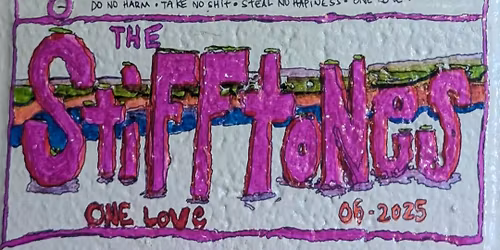 DO NO HARM • TAKE NO SHIT • STEAL NO HAPPINESS • ONE LOVE •
THE
StiFFtoNes
ONE LOVe 06-2025